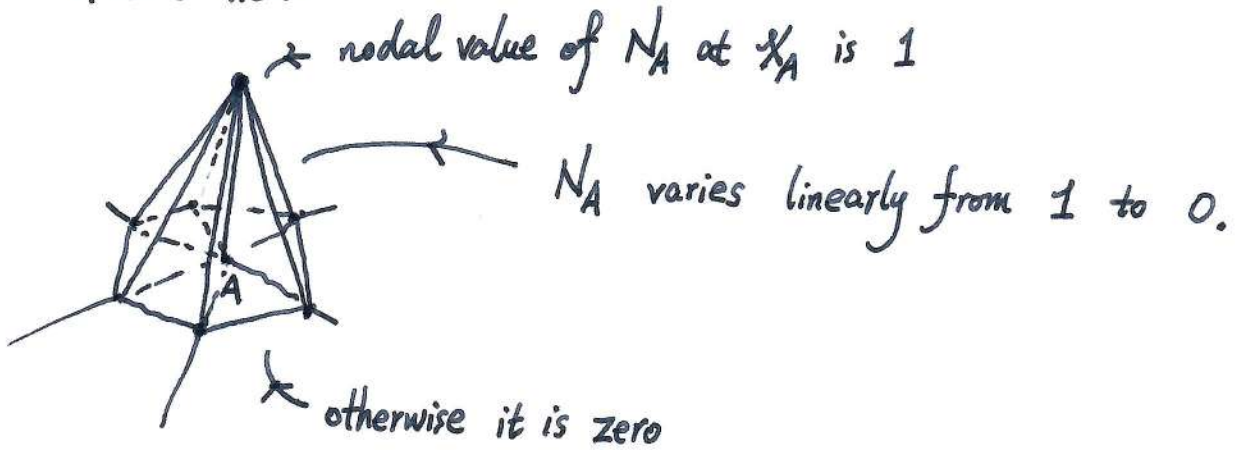 nodal value of N_A at x_A is 1
N_A varies linearly from 1 to 0.
A
otherwise it is zero